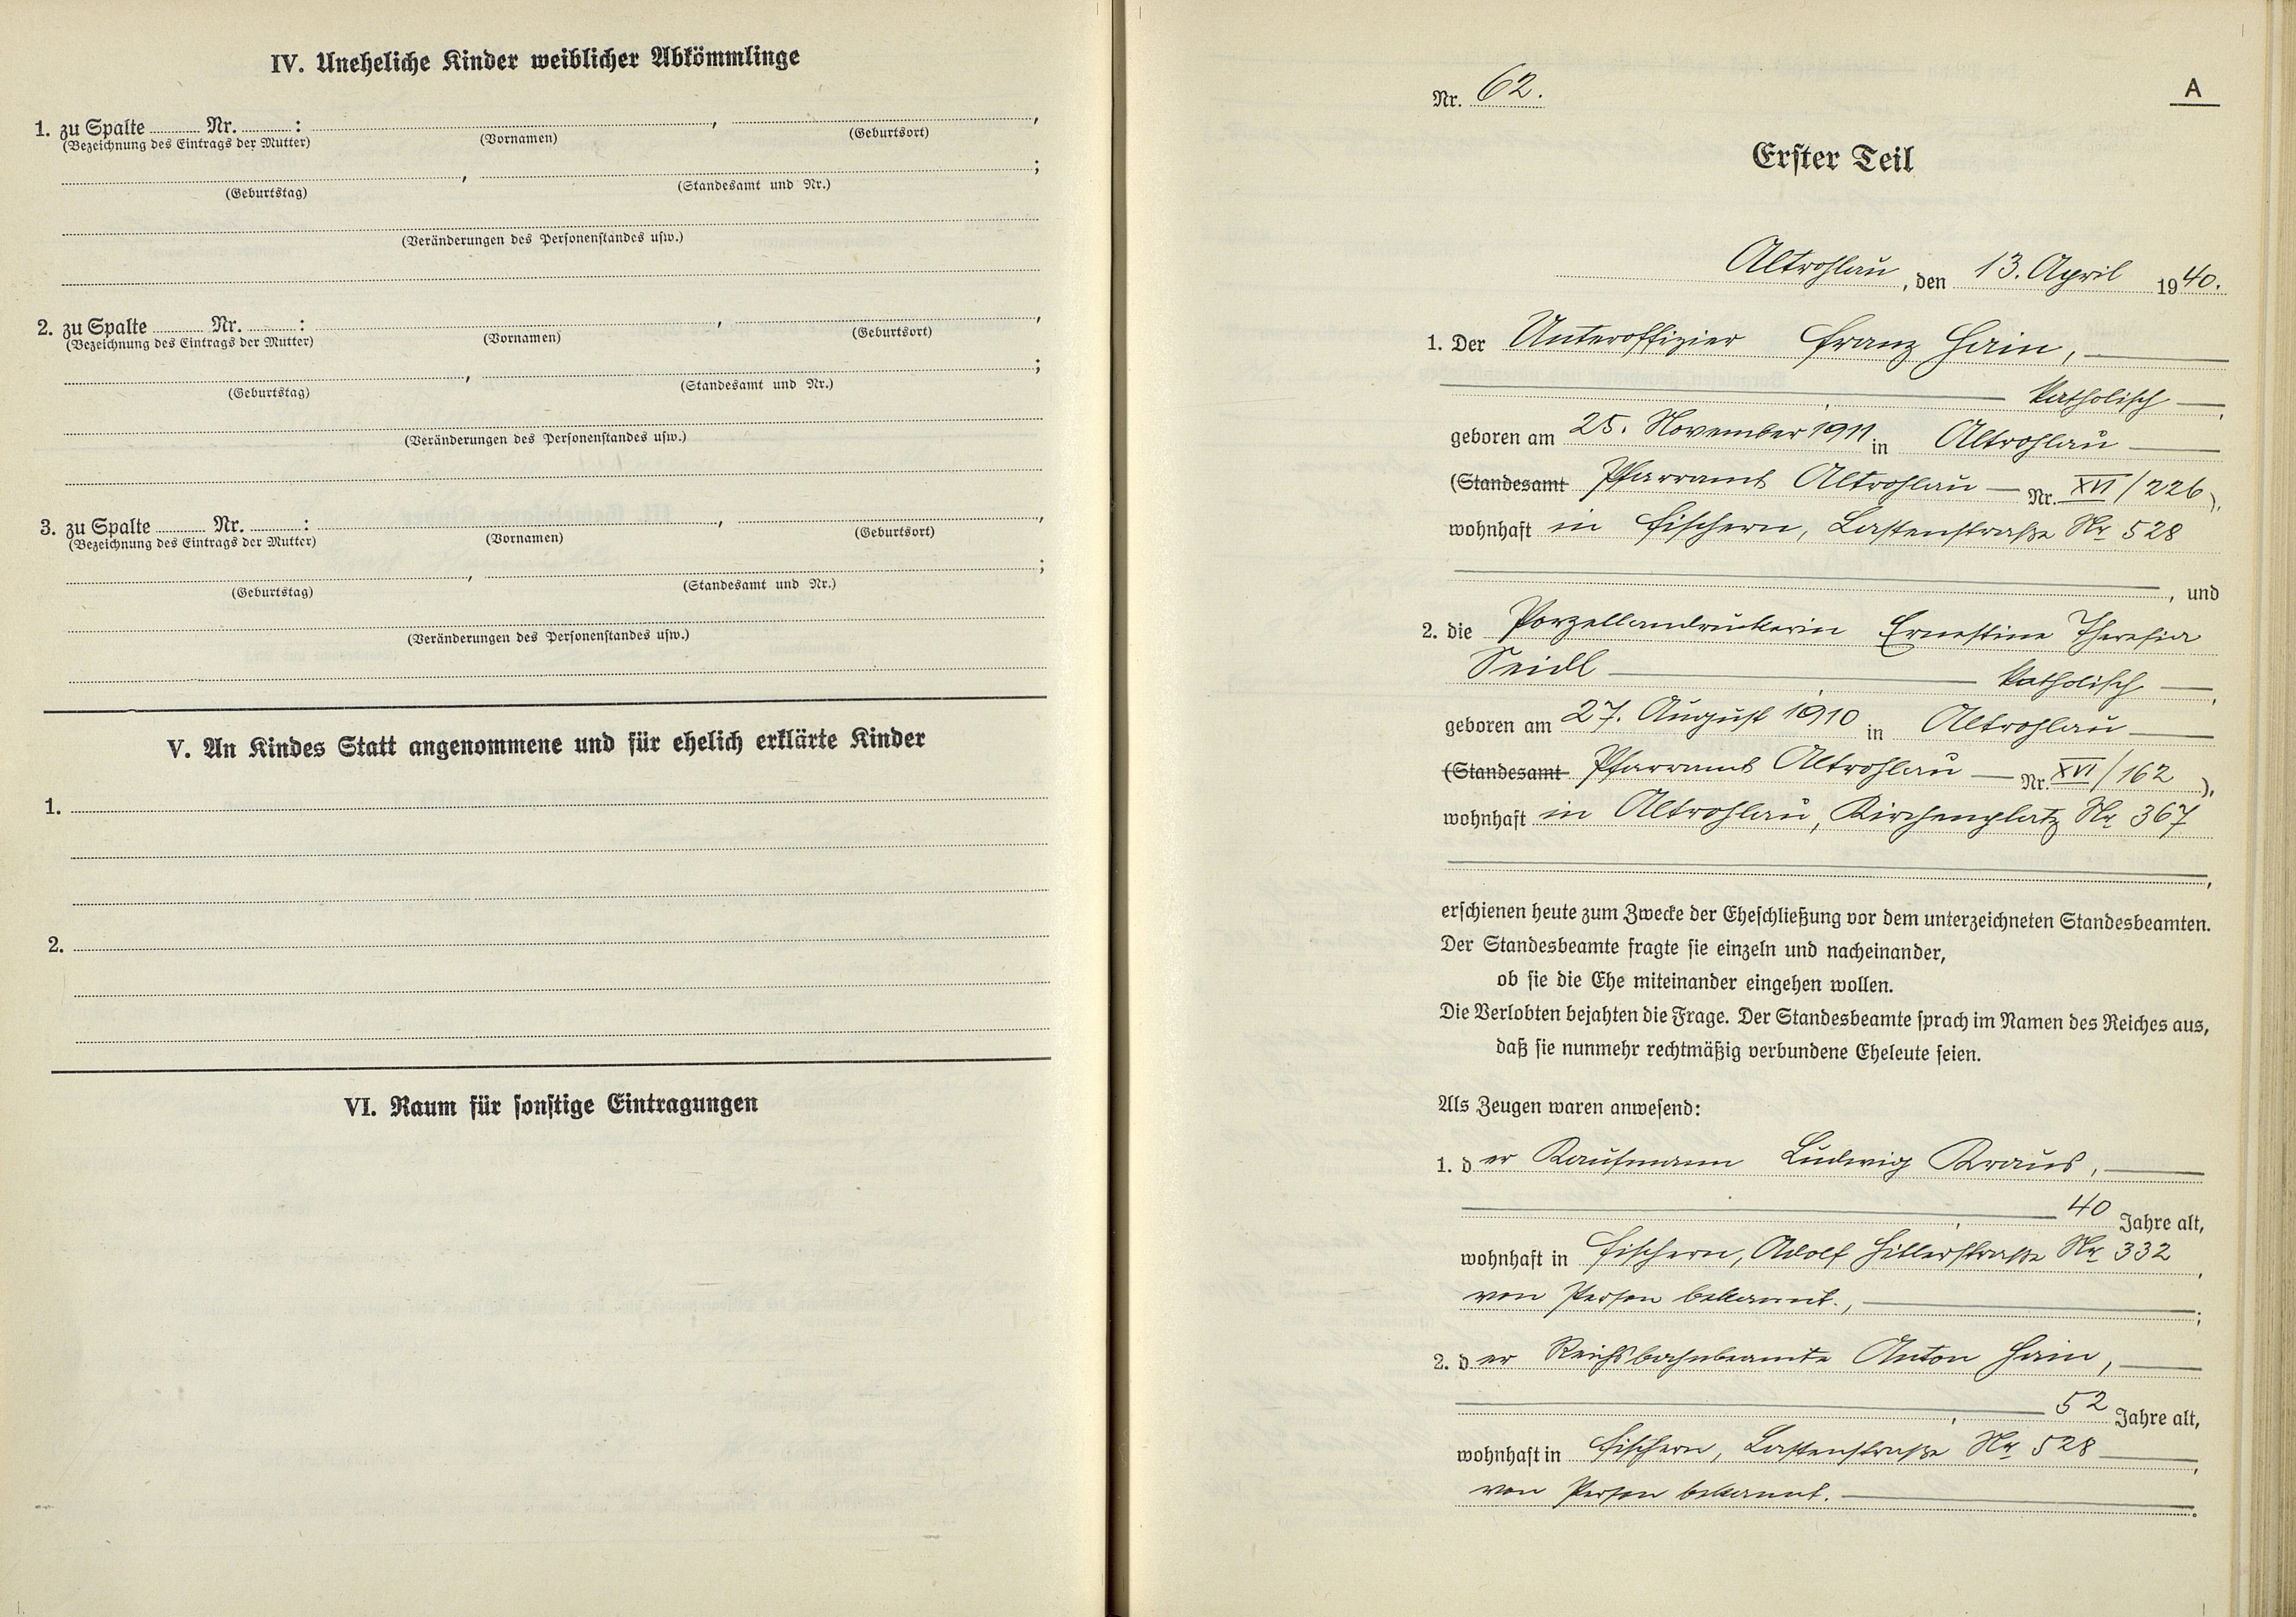 IV. Uneheliche Kinder weiblicher Abkömmlinge
1. zu Spalte ........ Nr. ........ : ........ , ........ ,
(Bezeichnung des Eintrags der Mutter) (Vornamen) (Geburtsort)
........ , ........ ;
(Geburtstag) (Standesamt und Nr.)
(Veränderungen des Personenstandes usw.)
2. zu Spalte ........ Nr. ........ : ........ , ........ ,
(Bezeichnung des Eintrags der Mutter) (Vornamen) (Geburtsort)
........ , ........ ;
(Geburtstag) (Standesamt und Nr.)
(Veränderungen des Personenstandes usw.)
3. zu Spalte ........ Nr. ........ : ........ , ........ ,
(Bezeichnung des Eintrags der Mutter) (Vornamen) (Geburtsort)
........ , ........ ;
(Geburtstag) (Standesamt und Nr.)
(Veränderungen des Personenstandes usw.)
V. An Kindes Statt angenommene und für ehelich erklärte Kinder
1.
2.
VI. Raum für sonstige Eintragungen
Nr. 62.
A
Erster Teil
Altrohlau, den 13. April 1940.
1. Der Unteroffizier Franz Hain,
katholisch,
geboren am 25. November 1911 in Altrohlau
(Standesamt Pfarramt Altrohlau — Nr. XVI/226),
wohnhaft in Fischern, Lastenstraße Nr 528
, und
2. die Porzellandruckerin Ernestine Theresia
Seidl — katholisch,
geboren am 27. August 1910 in Altrohlau
(Standesamt Pfarramt Altrohlau — Nr. XVI/162),
wohnhaft in Altrohlau, Kirchenplatz Nr 367
,
erschienen heute zum Zwecke der Eheschließung vor dem unterzeichneten Standesbeamten.
Der Standesbeamte fragte sie einzeln und nacheinander,
ob sie die Ehe miteinander eingehen wollen.
Die Verlobten bejahten die Frage. Der Standesbeamte sprach im Namen des Reiches aus,
daß sie nunmehr rechtmäßig verbundene Eheleute seien.
Als Zeugen waren anwesend:
1. der Kaufmann Ludwig Kraus,
40 Jahre alt,
wohnhaft in Fischern, Adolf Hitlerstraße Nr 332,
von Person bekannt.,;
2. der Reichsbahnbeamte Anton Hain,
52 Jahre alt,
wohnhaft in Fischern, Lastenstraße Nr 528,
von Person bekannt.